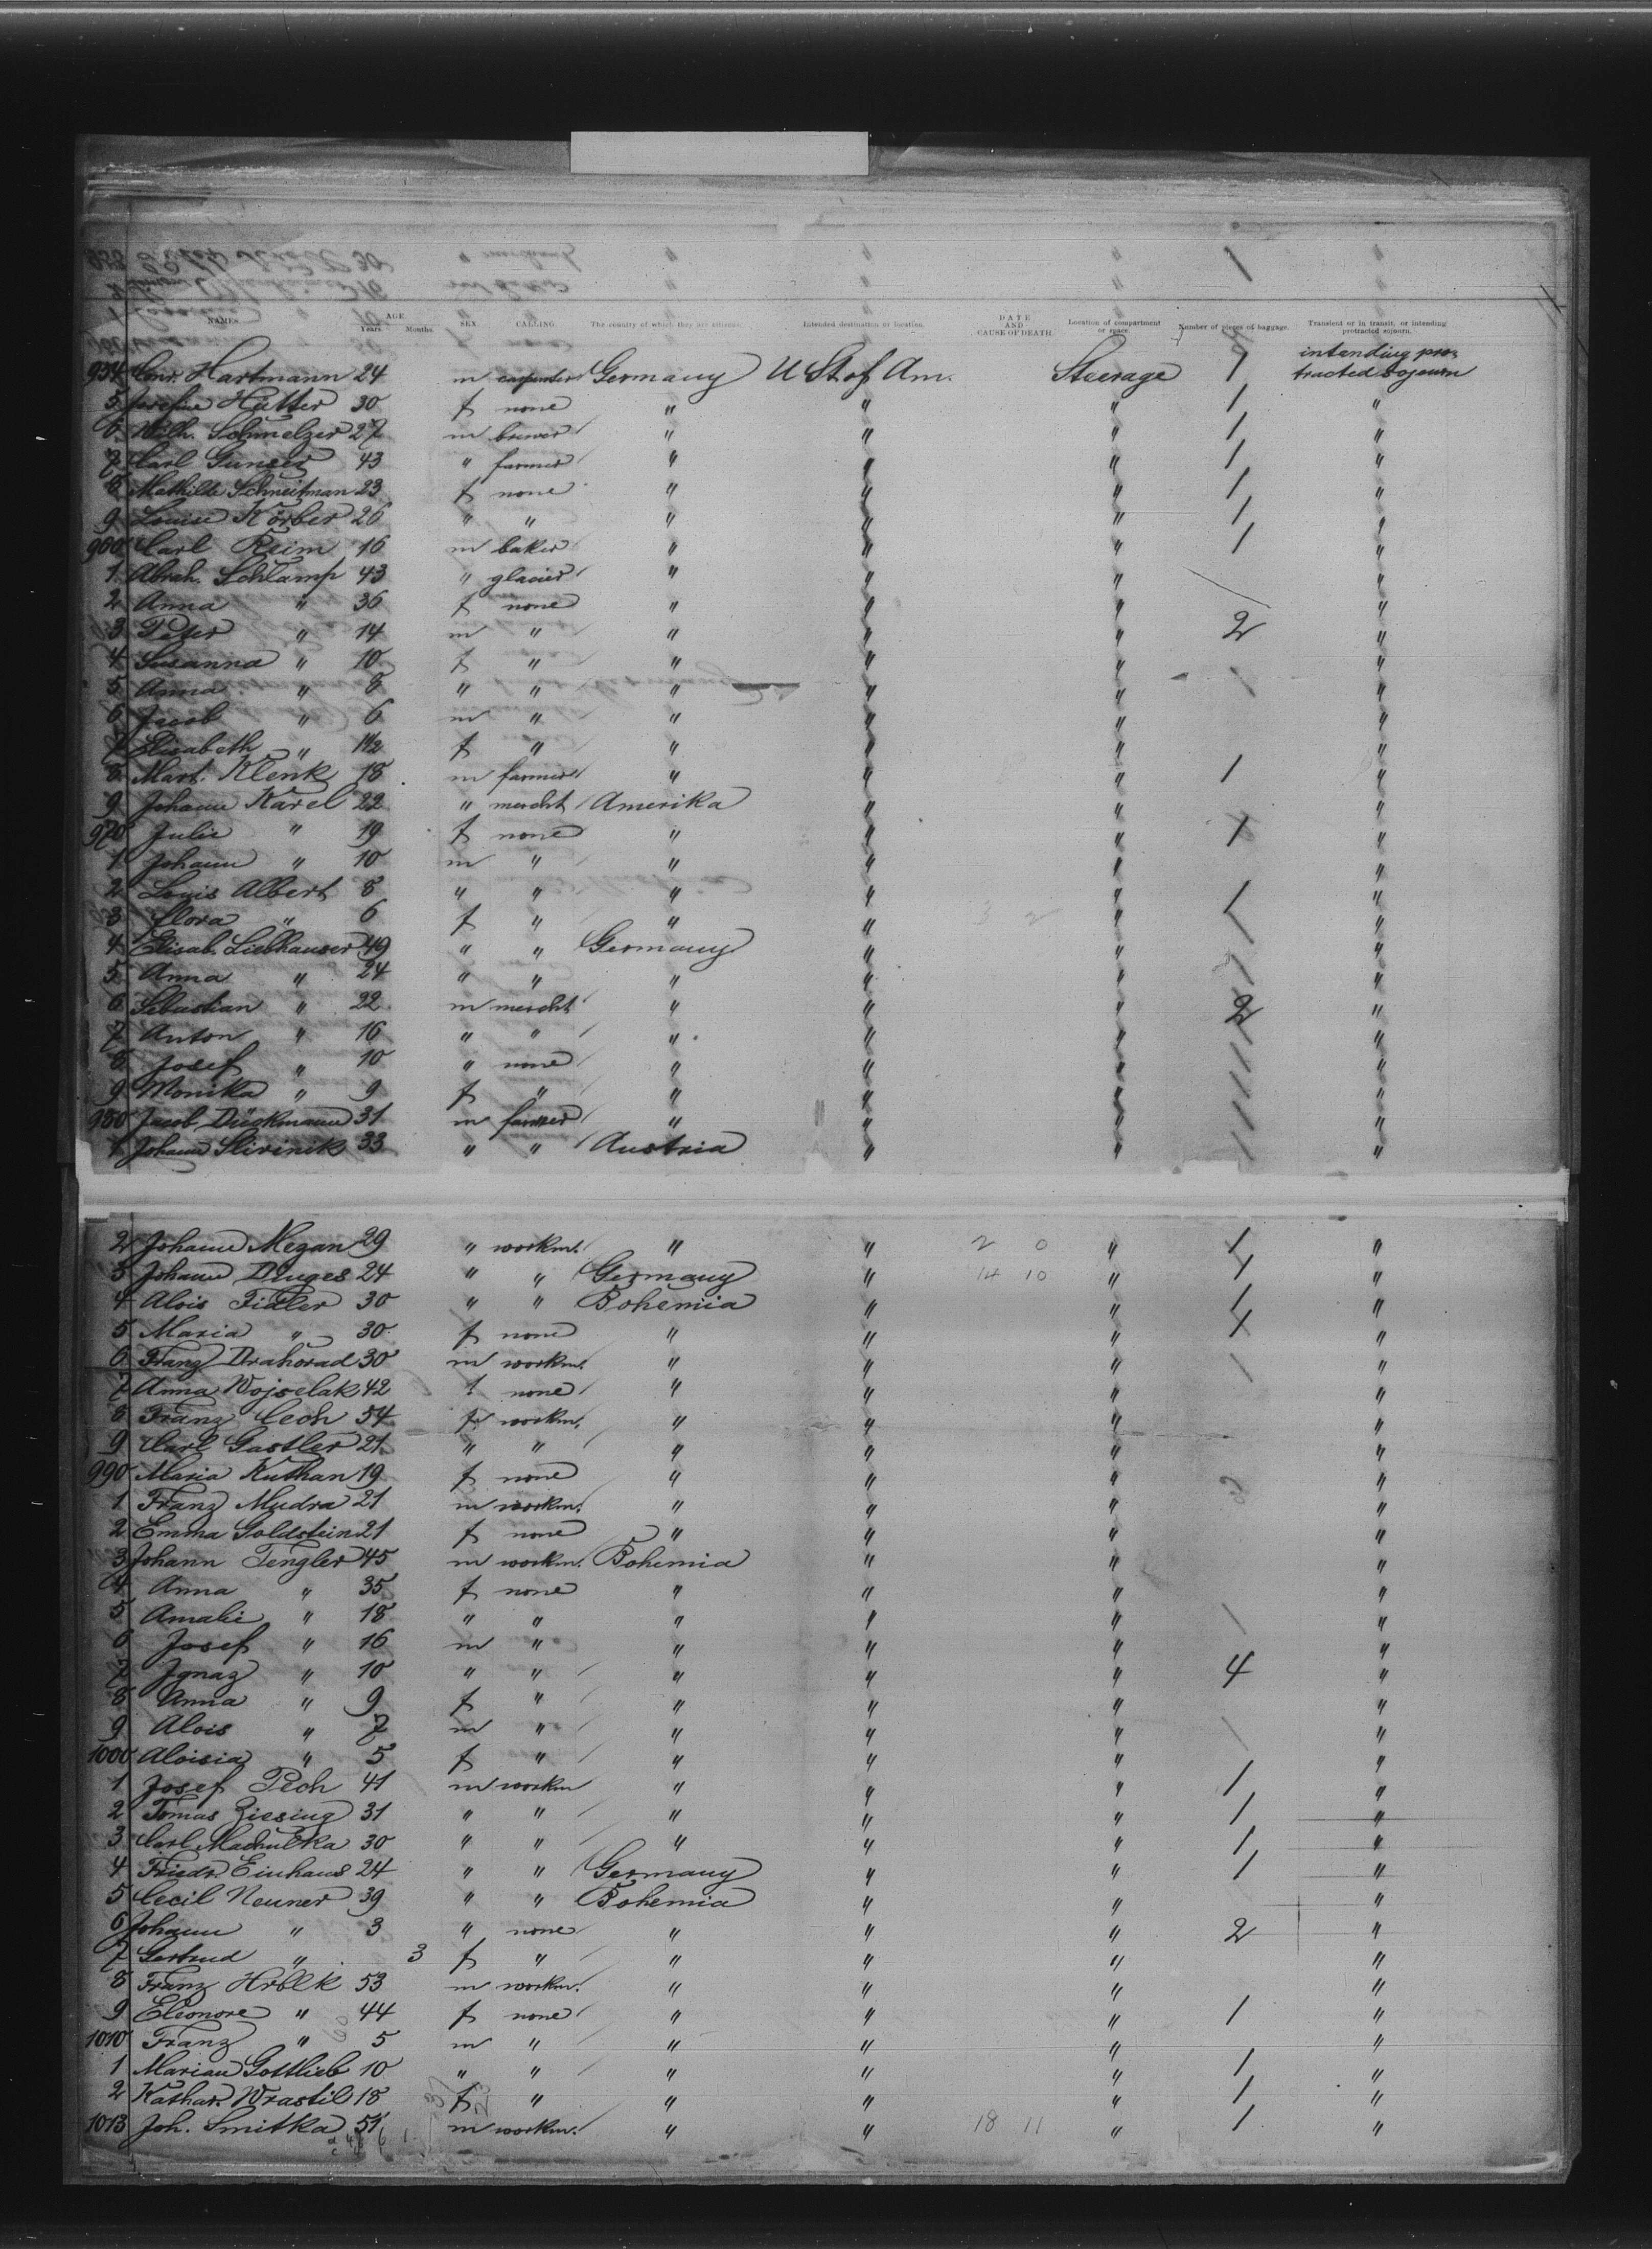 NAMES. AGE Years. Months. SEX. CALLING. The country of which they are citizens. Intended destination or location. DATE AND CAUSE OF DEATH. Location of compartment or space. Number of pieces of baggage. Transient or in transit, or intending protracted sojourn.
954 Conr. Hartmann 24 m carpenter Germany U St of Am. Steerage 1 intending pro- tracted sojourn
5 Josefine Hutter 30 f none " " " 1 "
6 Wilh. Schmelzer 27 m brewer " " " 1 "
7 Carl Gunser 43 " farmer " " " 1 "
8 Mathilde Schneitman 23 f none " " " 1 "
9 Louise Körber 26 " " " " " 1 "
960 Carl Reim 16 m baker " " " 1 "
1 Abrah. Schlamp 43 " glacier " " " "
2 Anna " 36 f none " " " "
3 Peter " 14 m " " " " 2 "
4 Susanna " 10 f " " " " "
5 Anna " 8 " " " " " "
6 Jacob " 6 m " " " " "
7 Elisabeth " 1 1/2 f " " " " "
8 Mart. Klenk 18 m farmer " " " 1 "
9 Johann Karel 22 " mercht Amerika " " "
970 Julie " 19 f none " " " 1 "
1 Johann " 10 m " " " " "
2 Louis Albert 8 " " " " " 1 "
3 Flora " 6 f " " " " "
4 Elisab. Liebhauser 49 " " Germany " " "
5 Anna " 24 " " " " " "
6 Sebastian " 22 m mercht " " " 2 "
7 Anton " 16 " " " " " "
8 Josef " 10 " none " " " "
9 Monika " 9 f " " " " "
980 Jacob Dückmann 31 m farmer " " " "
1 Johann Slivinik 33 " " Austria " " "
2 Johann Megan 29 " workm. " " 2 0 " 1 "
3 Johann Dinges 24 " " Germany " 14 10 " 1 "
4 Alois Fidler 30 " " Bohemia " " 1 "
5 Maria " 30 f none " " " 1 "
6 Franz Drahorad 30 m workm. " " " "
7 Anna Wojselak 42 f none " " " "
8 Franz Cech 54 workm. " " " "
9 Carl Gastler 21 " " " " " "
990 Maria Kuthan 19 f none " " " "
1 Franz Mudra 21 m workm. " " " "
2 Emma Goldstein 21 f none " " " "
3 Johann Tengler 45 m workm. Bohemia " " "
4 Anna " 35 f none " " " "
5 Amalie " 18 " " " " " "
6 Josef " 16 m " " " " "
7 Ignaz " 10 " " " " " 4 "
8 Anna " 9 f " " " " "
9 Alois " 7 m " " " " "
1000 Aloisia " 5 f " " " " "
1 Josef Pech 41 m workm " " " 1 "
2 Tomas Ziesing 31 " " " " " 1 "
3 Carl Machulka 30 " " " " " 1 "
4 Friedr. Einhaus 24 " " Germany " " 1 "
5 Cecil Neuner 39 " " Bohemia " " "
6 Johann " 3 " none " " " 2 "
7 Gertrud " 3 f " " " " "
8 Franz Hrblk 53 m workm. " " " "
9 Eleonore " 44 f none " " " 1 "
1010 Franz " 5 m " " " " "
1 Marian Gottlieb 10 " " " " " 1 "
2 Kathar. Wrastil 18 f " " " " 1 "
1013 Joh. Smitka 51 m workm. " " 18 11 " 1 "